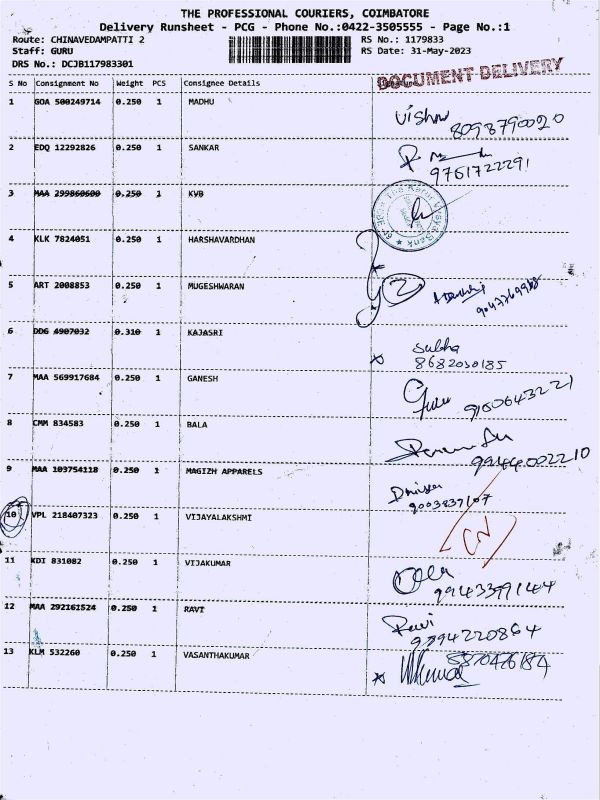 THE PROFESSIONAL COURIERS, COIMBATORE
Delivery Runsheet - PCG - Phone No.:0422-3505555 - Page No.:1
Route: CHINAVEDAMPATTI 2 RS No.: 1179833
Staff: GURU RS Date: 31-May-2023
DRS No.: DCJB117983301
S No Consignment No Weight PCS Consignee Details
DOCUMENT DELIVERY
1 GOA 500249714 0.250 1 MADHU
8098790020
2 EDQ 12292826 0.250 1 SANKAR
9761722291
3 MAA 299860600 0.250 1 KVB
4 KLK 7824051 0.250 1 HARSHAVARDHAN
5 ART 2008853 0.250 1 MUGESHWARAN
2
6 DDG 4907032 0.310 1 KAJASRI
Subha
8682030185
7 MAA 569917684 0.250 1 GANESH
Guru
8 CMM 834583 0.250 1 BALA
9944002210
9 MAA 103754118 0.250 1 MAGIZH APPARELS
9003837107
10 VPL 218407323 0.250 1 VIJAYALAKSHMI
11 KDI 831082 0.250 1 VIJAKUMAR
12 MAA 292161524 0.250 1 RAVI
Ravi
9794220864
13 KLM 532260 0.250 1 VASANTHAKUMAR